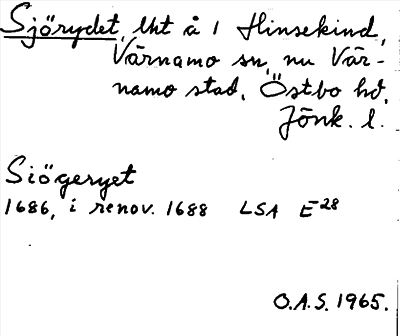 Sjörydet, lht å 1 Hinsekind,
Värnamo sn, nu Vär-
namo stad, Östbo hd,
Jönk. l.
Siögeryet
1686, i renov. 1688 LSA E 28
O.A.S. 1965.